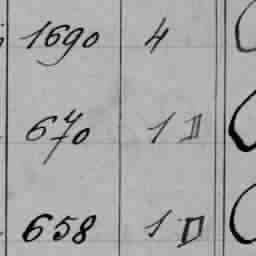 1690 4
670 1 D
658 1 D